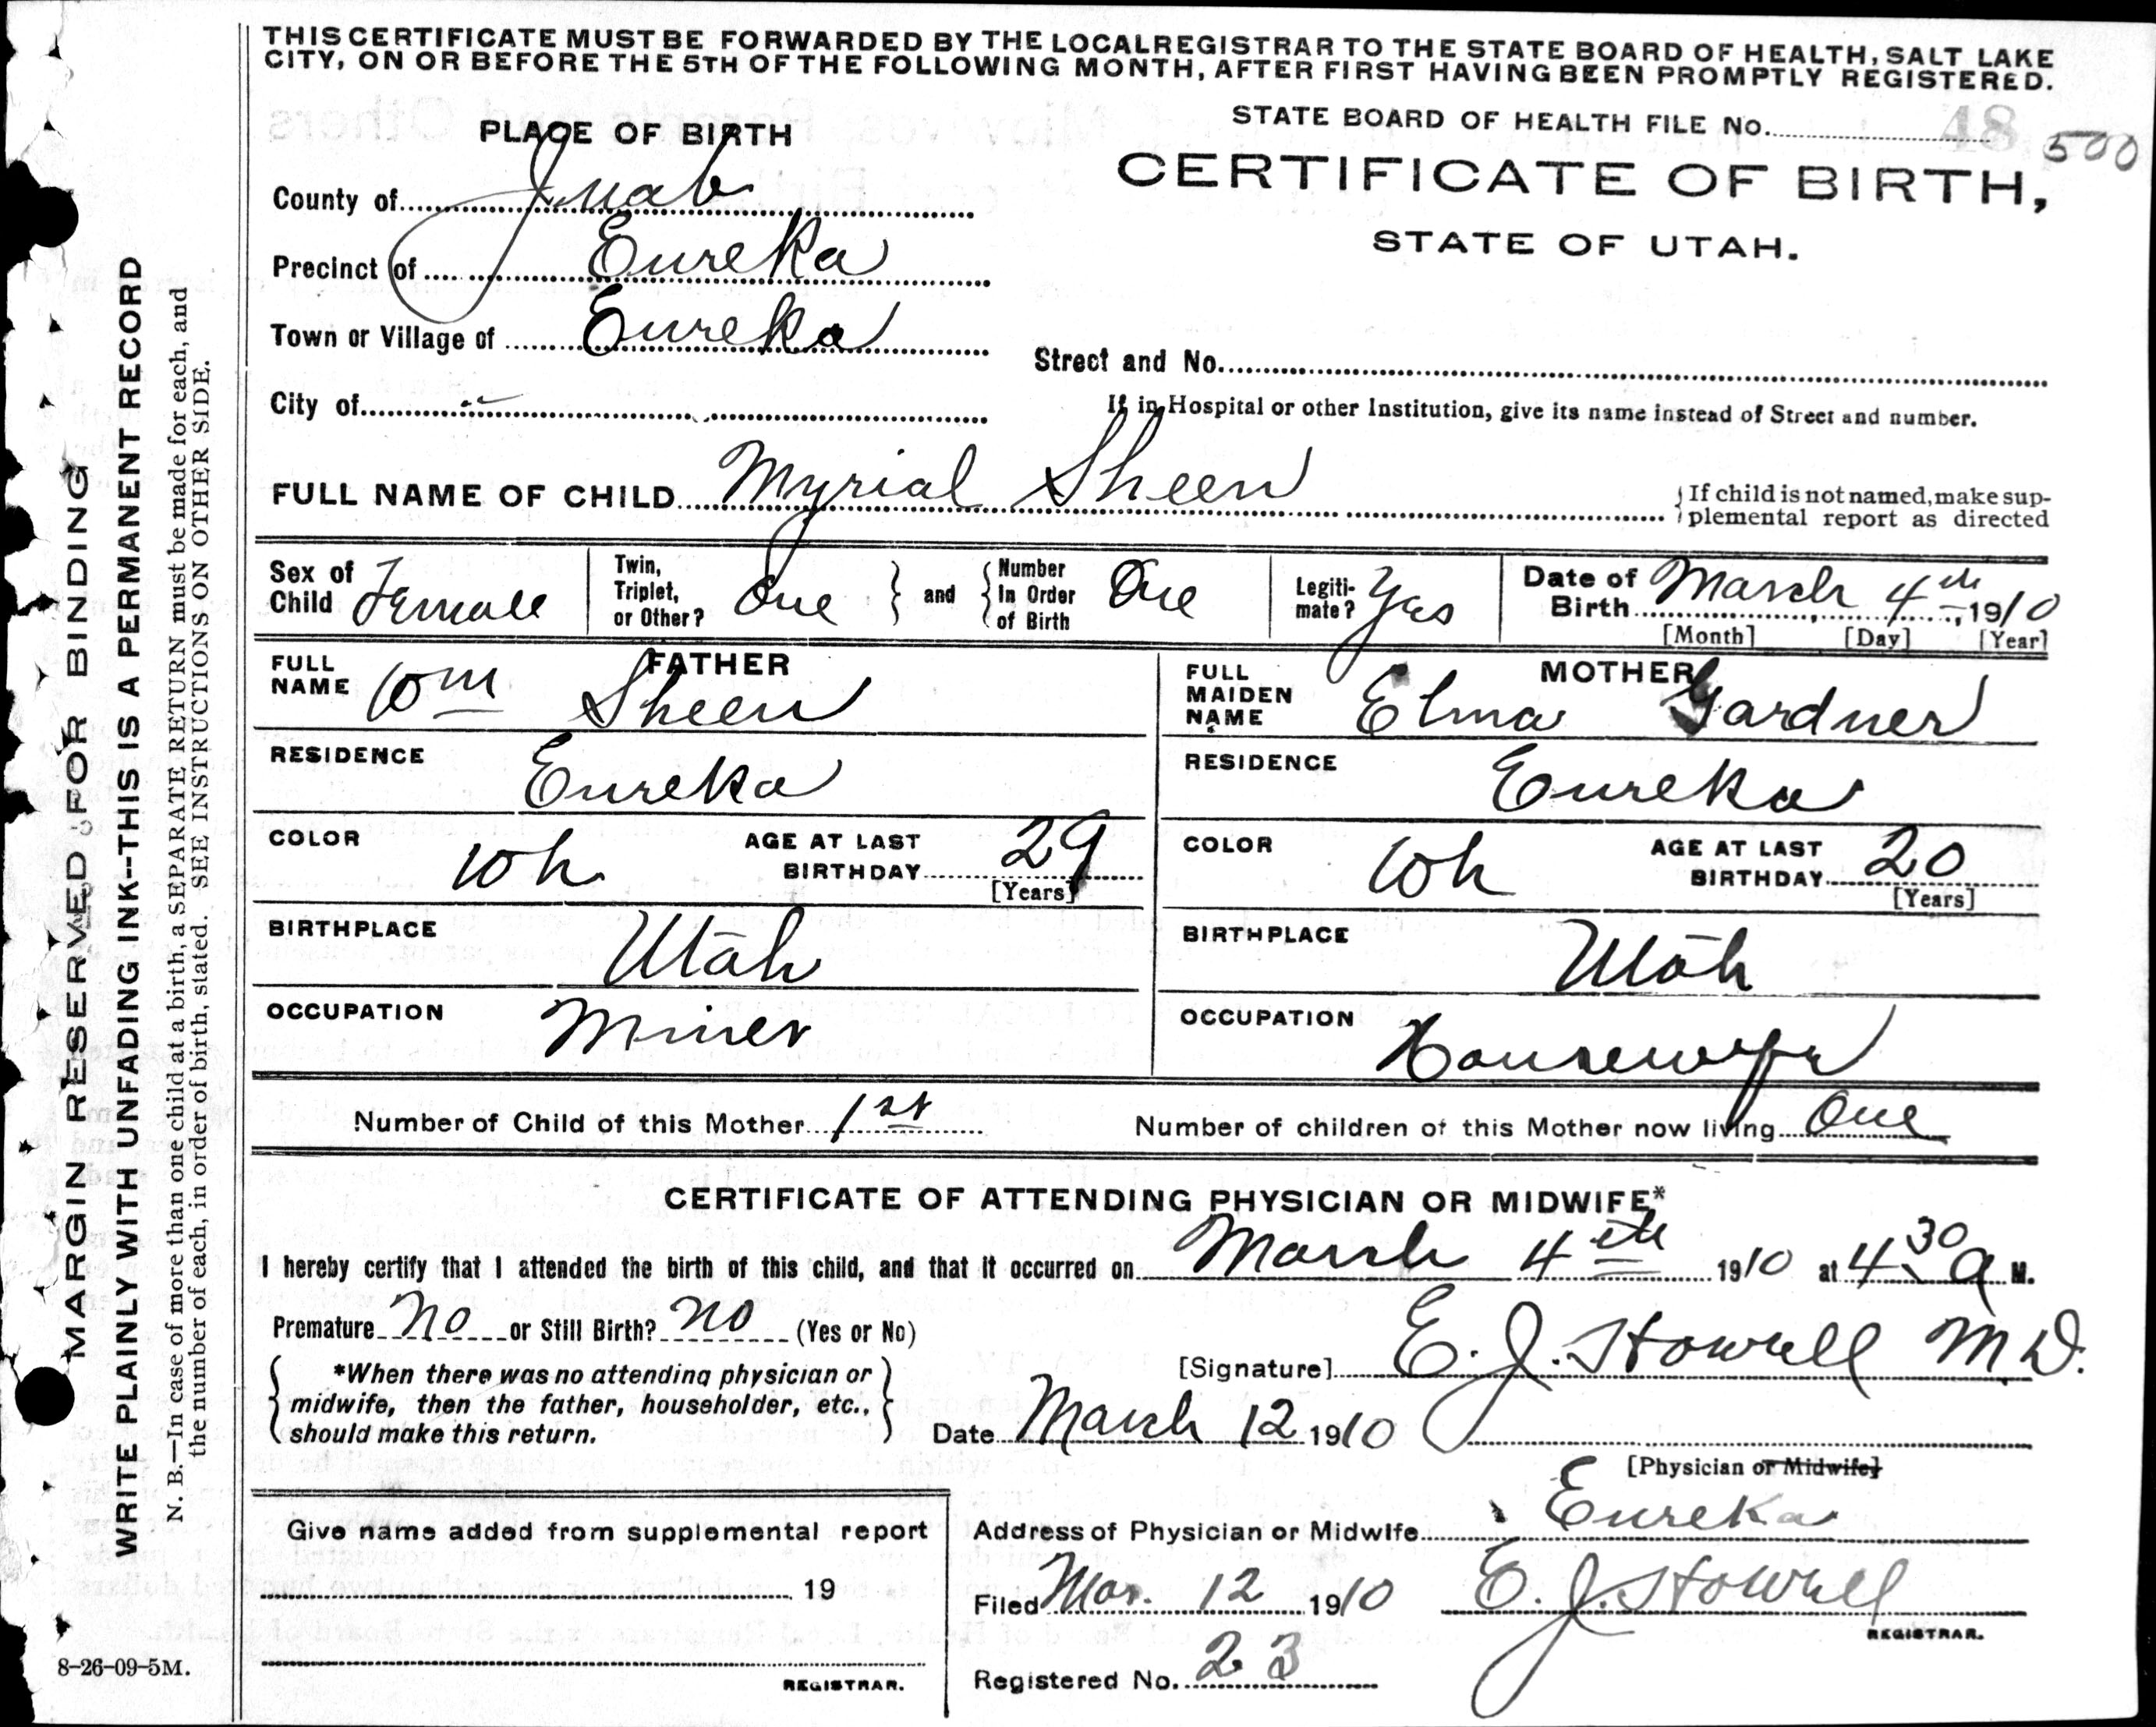 THIS CERTIFICATE MUST BE FORWARDED BY THE LOCAL REGISTRAR TO THE STATE BOARD OF HEALTH, SALT LAKE
CITY, ON OR BEFORE THE 5TH OF THE FOLLOWING MONTH, AFTER FIRST HAVING BEEN PROMPTLY REGISTERED.
STATE BOARD OF HEALTH FILE No. 48 500
PLACE OF BIRTH
CERTIFICATE OF BIRTH,
STATE OF UTAH.
County of Juab
Precinct of Eureka
Town or Village of Eureka
Street and No.
City of
If in Hospital or other Institution, give its name instead of Street and number.
FULL NAME OF CHILD Myrial Sheen
If child is not named, make sup-
plemental report as directed
Sex of Child Female
Twin, Triplet, or Other? One
and
Number In Order of Birth One
Legiti-mate? Yes
Date of Birth March 4th 1910
[Month] [Day] [Year]
FATHER
FULL NAME Wm Sheen
RESIDENCE Eureka
COLOR Wh AGE AT LAST BIRTHDAY 29
[Years]
BIRTHPLACE Utah
OCCUPATION Miner
MOTHER
FULL MAIDEN NAME Elma Gardner
RESIDENCE Eureka
COLOR Wh AGE AT LAST BIRTHDAY 20
[Years]
BIRTHPLACE Utah
OCCUPATION Housewife
Number of Child of this Mother 1st Number of children of this Mother now living One
CERTIFICATE OF ATTENDING PHYSICIAN OR MIDWIFE*
I hereby certify that I attended the birth of this child, and that it occurred on March 4th 1910 at 4 30 a M.
Premature No or Still Birth? No (Yes or No)
*When there was no attending physician or
midwife, then the father, householder, etc.,
should make this return.
[Signature] E. J. Howell M D.
Date March 12 1910
[Physician or Midwife]
Address of Physician or Midwife Eureka
Filed Mar. 12 1910 E. J. Howell
REGISTRAR.
Registered No. 23
Give name added from supplemental report
19
REGISTRAR.
MARGIN RESERVED FOR BINDING
WRITE PLAINLY WITH UNFADING INK--THIS IS A PERMANENT RECORD
N. B.—In case of more than one child at a birth, a SEPARATE RETURN must be made for each, and
the number of each, in order of birth, stated. SEE INSTRUCTIONS ON OTHER SIDE.
8-26-09-5M.